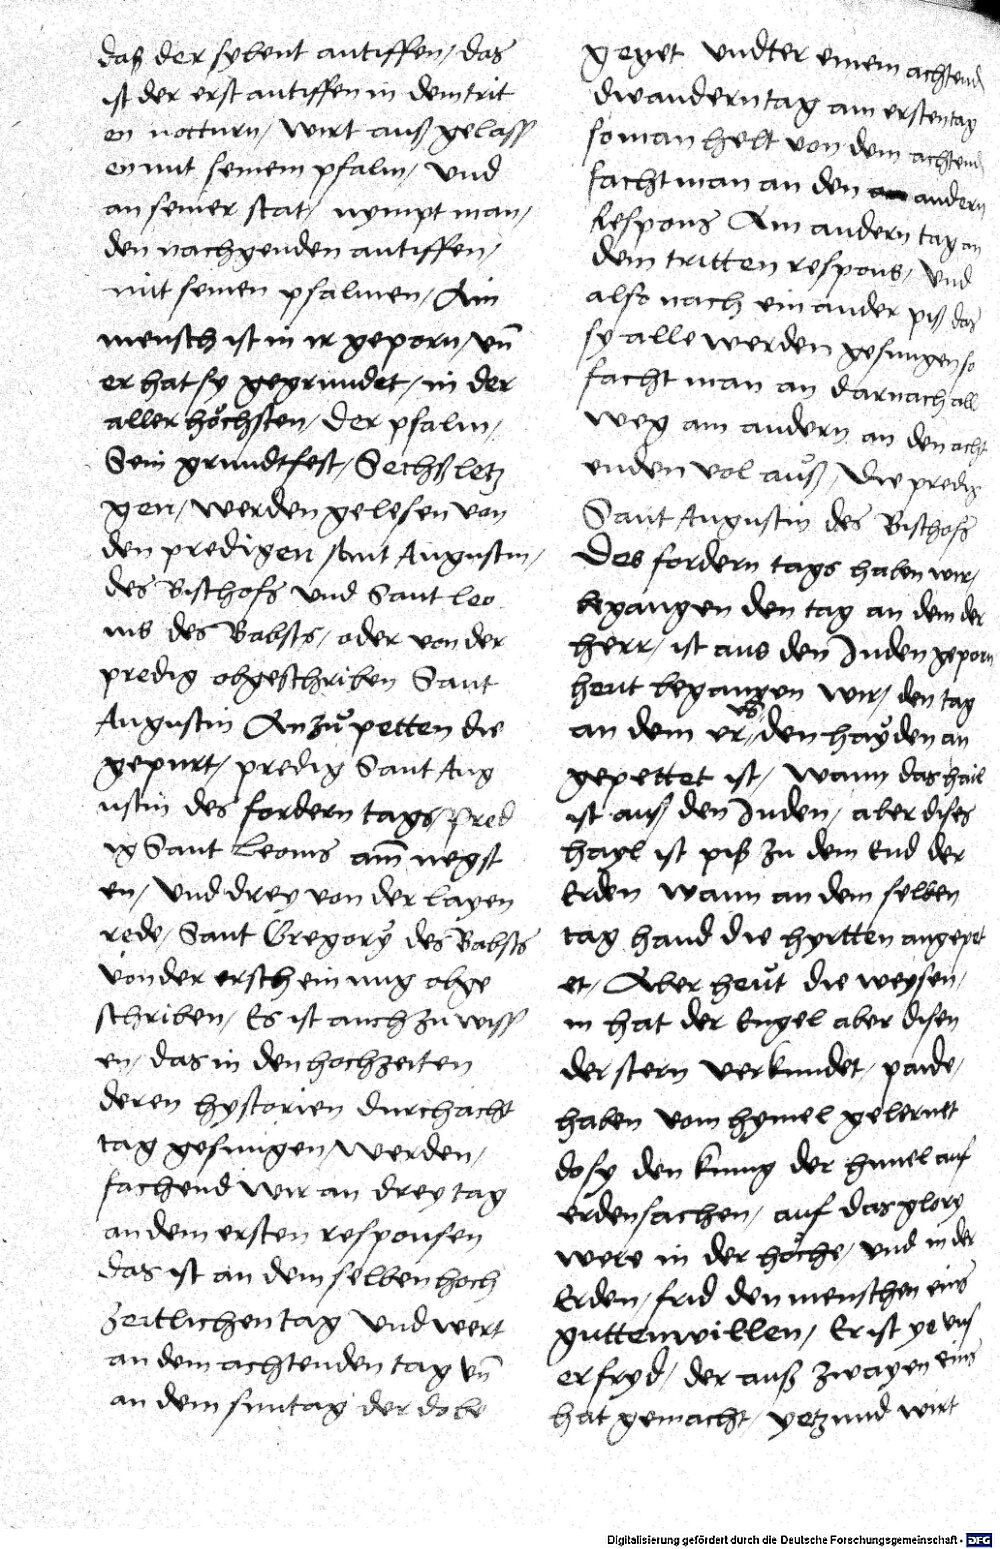 das der sybent antiffen / das
ist der erst antiffen in dem trit
en notturn / wirt auß gelass
en mit seinem psalm / und
an seiner stat / nympt man /
den nachgenden antiffen /
mit seinen psalmen / Ain
mensch ist in ir geporn / vn̄
er hat sy gegrundet / in der
aller höchsten / der psalm /
Sein grundtfest / Sechß letz
gen / werden gelesen von
den predigen sant Augustin /
des Bischofs und Sant Leo
nis des Babsts / oder von der
predig obgeschriben Sant
Augustin An zů petten die
gepurt / predig Sant Aug
ustin des fordern tags / pred
ig Sant Leonis am̄ negst
en / Und drey von der layen
rede / Sant Gregorÿ des Babsts
von der erscheinung obge
schriben / Es ist auch zu wiss
en / das in den hochzeiten
deren hystorien durch acht
tag gesungen / werden /
fachend wir an drey tag
an dem ersten responsen
das ist an dem selben hoch
zeitlichen tag und wert
an dem achtenden tag vn̄
an dem suntag der do be
geget undter einem achtend
die andern tag am ersten tag
so man helt von dem achtend
facht man an den andern
Respons Am andern tag an
dem tritten respons / Und
also nach ein ander piß das
sy alle werden gesungen so
facht man an darnach all
weg am andern an den acht
enden vol auß / Die predig
Sant Augustin des Bischofs
Des fordern tags haben wir /
begangen den tag an dem der
herr / ist aus den Juden geporn
heut begangen wir / den tag
an dem er / es / den hayden an
gepettet ist / Wann das hail
ist auß den Juden / aber dises
hayl ist piß zu dem End der
Erden wann an dem selben
tag hand die hyrtten angepet
et / Aber heut die weysen /
in hat der Engel aber disen
der stern verkundet / paide /
haben vom hymel gelernet
do sy den kunig der himel auf
erden sachen / auf das glory
were in der höche / und in der
Erden / frid den menschen eins
gutten willen / Er ist ye uns
er fryd / der auß zwayen eins
hat gemacht / yetzund wirt
Digitalisierung gefördert durch die Deutsche Forschungsgemeinschaft - DFG